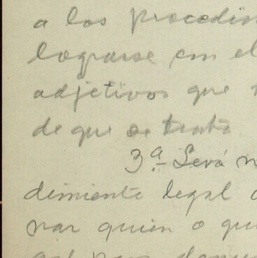 a los procedim
lograrse con el
adjetivos que
de que se trata
3ª Será n
dimiento legal
nar quien o qu